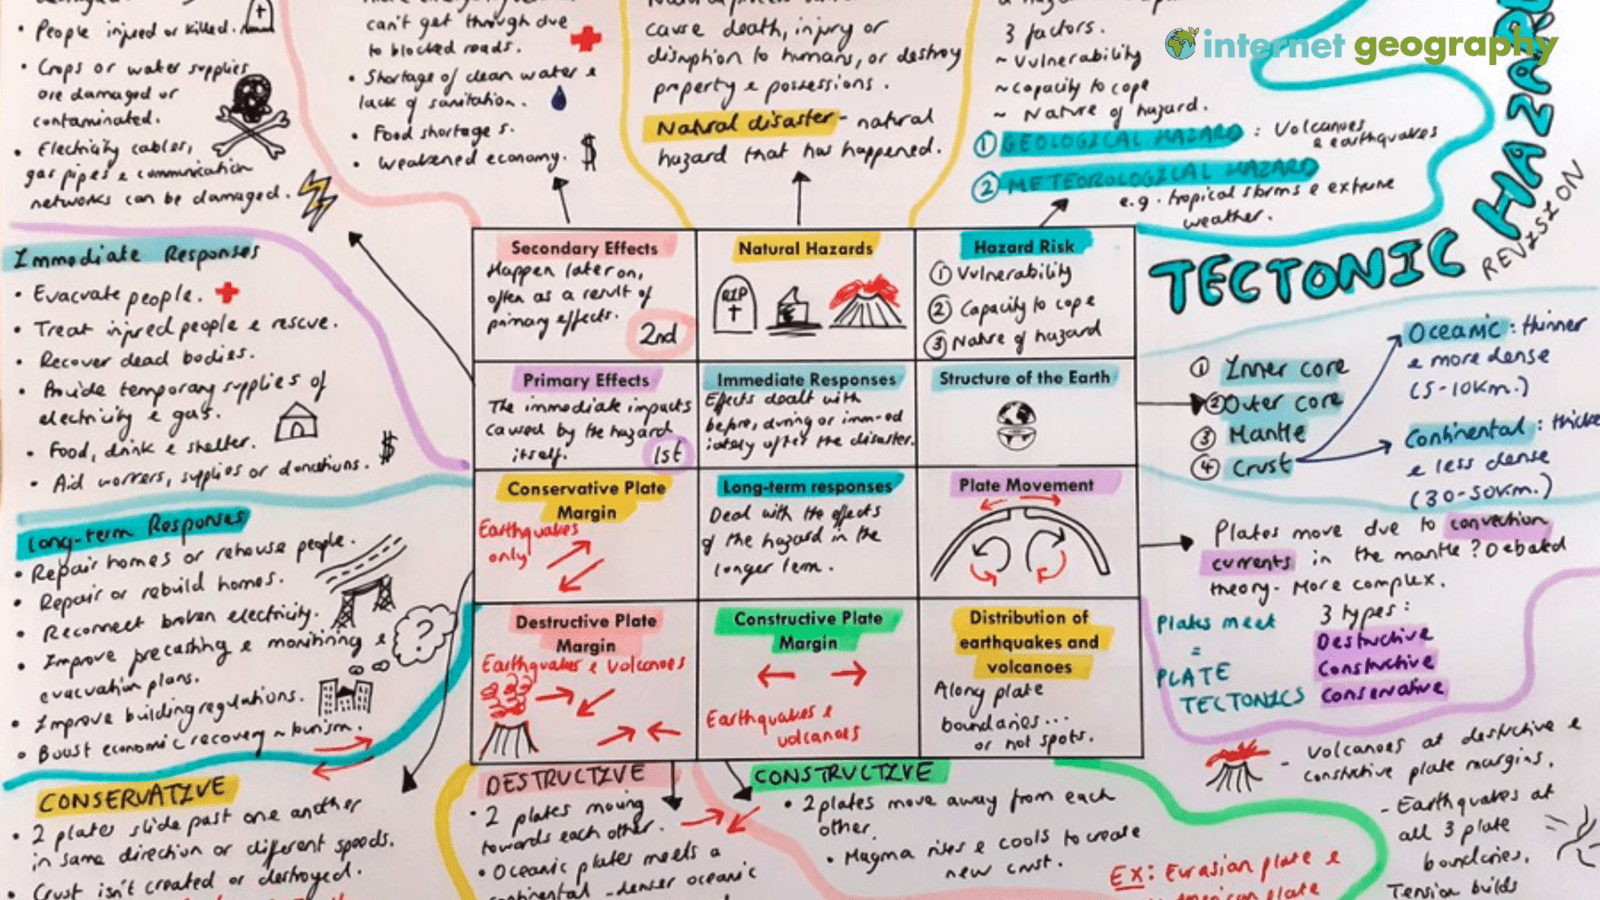 internet geography
TECTONIC
HAZARD
REVISION
People injured or killed.
Crops or water supplies
are damaged or
contaminated.
Electricity cables,
gas pipes & communication
networks can be damaged.
can't get through due
to blocked roads.
Shortage of clean water &
lack of sanitation.
Food shortages.
Weakened economy.
cause death, injury or
disruption to humans, or destroy
property & possessions.
Natural disaster - natural
hazard that has happened.
3 factors.
~ Vulnerability
~ capacity to cope
~ Nature of hazard.
① GEOLOGICAL HAZARD : Volcanoes
& earthquakes
② METEOROLOGICAL HAZARD
e.g. tropical storms & extreme
weather.
Immediate Responses
Evacuate people.
Treat injured people & rescue.
Recover dead bodies.
Provide temporary supplies of
electricity & gas.
Food, drink & shelter.
Aid workers, supplies or donations.
Long-term Responses
Repair homes or rehouse people.
Repair or rebuild homes.
Reconnect broken electricity.
Improve precasting & monitoring &
evacuation plans.
Improve building regulations.
Boost economic recovery ~ tourism.
Secondary Effects
Happen later on,
often as a result of
primary effects.
2nd
Natural Hazards
RIP
Hazard Risk
① Vulnerability
② Capacity to cope
③ Nature of hazard
Primary Effects
The immediate impacts
caused by the hazard
itself.
1st
Immediate Responses
Effects dealt with
before, during or immed
iately after the disaster.
Structure of the Earth
Conservative Plate
Margin
Earthquakes
only
Long-term responses
Deal with the effects
of the hazard in the
longer term.
Plate Movement
Destructive Plate
Margin
Earthquakes & Volcanoes
Constructive Plate
Margin
Earthquakes &
volcanoes
Distribution of
earthquakes and
volcanoes
Along plate
boundaries...
or hot spots.
① Inner core
② Outer core
③ Mantle
④ Crust
Oceanic : thinner
& more dense
(5-10km.)
Continental : thicke
& less dense
(30-50km.)
Plates move due to convection
currents in the mantle? Debated
theory. More complex.
Plates meet
=
PLATE
TECTONICS
3 types:
Destructive
Constructive
Conservative
- Volcanoes at destructive &
constructive plate margins.
- Earthquakes at
all 3 plate
boundaries.
Tension builds
CONSERVATIVE
2 plates slide past one another
in same direction or different speeds.
Crust isn't created or destroyed.
DESTRUCTIVE
2 plates moving
towards each other.
Oceanic plates meets a
continental - denser oceanic
CONSTRUCTIVE
2 plates move away from each
other.
Magma rises & cools to create
new crust.
Ex: Eurasian plate &
American plate